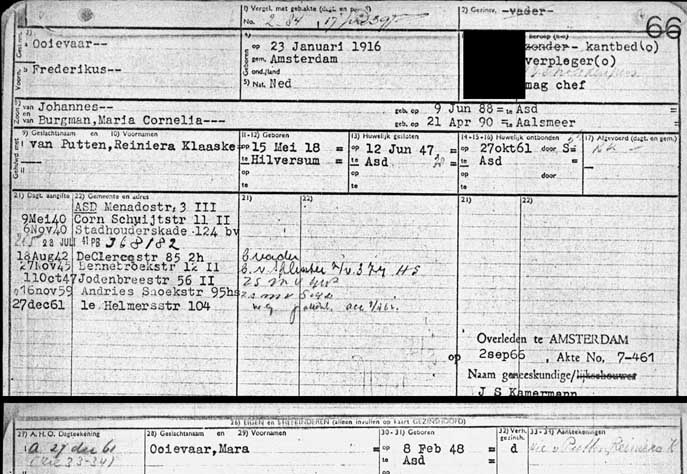 1) Vergel. met gebiakte (dagt. en par.)
No. 2 84, 17
2) Gezinsv. vader
66
Ooievaar--
op 23 Januari 1916
gem. Amsterdam
zonder- kantbed(o)
verpleger(o)
Voorn. Frederikus--
ond./land
5) Nat. Ned
mag chef
van Johannes--
geb. op 9 Jun 88 = te Asd =
en van Burgman,Maria Cornelia---
geb. op 21 Apr 90 = te Aalsmeer
9) Geslachtsnaam en 10) Voornamen
11-12) Geboren
13) Huwelijk gesloten
14-15-16) Huwelijk ontbonden
17) Afgevoerd (dagt. en gem.)
van Putten,Reiniera Klaaske
op 15 Mei 18 =
te Hilversum =
op 12 Jun 47 =
te Asd
op 27okt61 door S=
te Asd =
21) Dagt. aangifte
22) Gemeente en adres
21)
22)
21)
22)
ASD Menadostr, 3 III
9Mei40 Corn Schuijtstr 11 II
6Nov40 Stadhouderskade 124 bv
215 23 JULI 41 PB J68182
18Aug42 DeClercqstr 85 2h
27Nov45 Bennebroekstr 12 II
11Oct47 Jodenbreestr 56 II
16nov59 Andries Snoekstr 95hs
27dec61 1e Helmersstr 104
Overleden te AMSTERDAM
op 2sep66 , Akte No. 7-461
Naam geneeskundige/lijkschouwer
J S Kamermann
26) EIGEN en STIEFKINDEREN (alleen invullen op kaart GEZINSHOOFD)
27) A.H.O. Dagteekening
28) Geslachtsnaam en 29) Voornamen
30-31) Geboren
32) Verh. gezinsh.
33-34) Aanteekeningen
a 27 dec 61
(zie 33-34)
Ooievaar,Mara
op 8 Feb 48 =
te Asd =
d
zie v Putten, Reiniera K